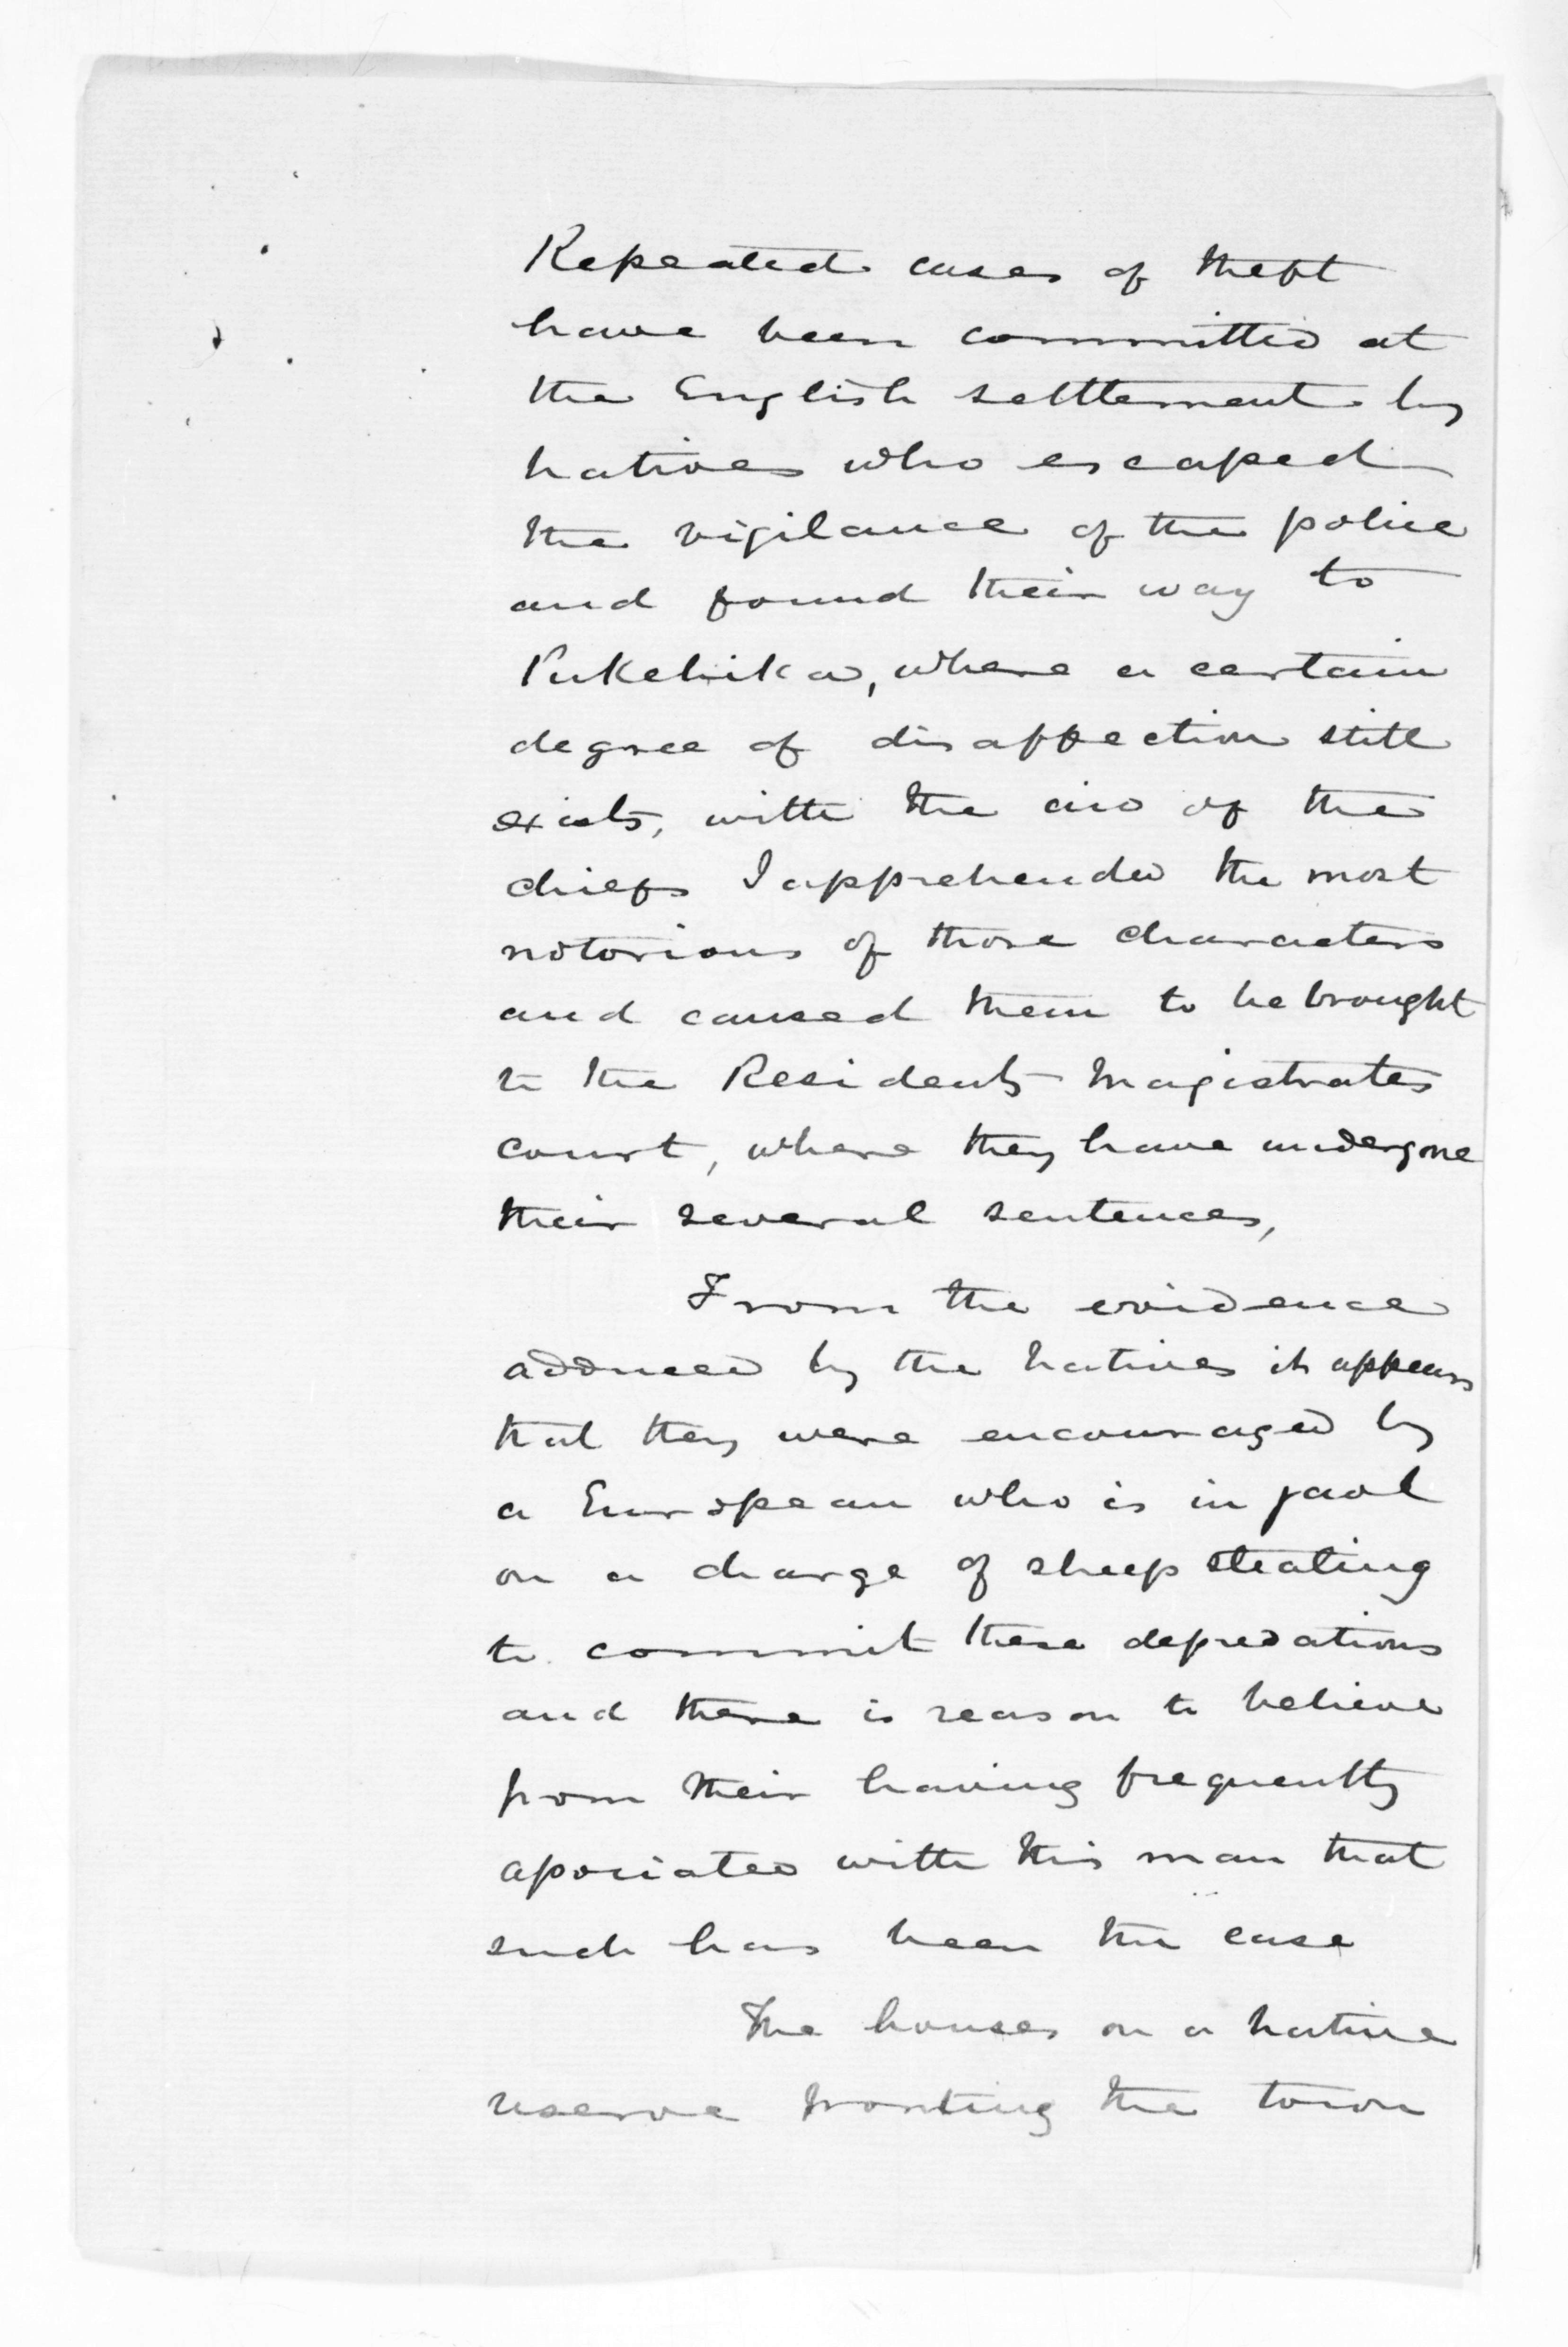 Repeated cases of theft
have been committed at
the English settlement by
natives who escaped
the vigilance of the police
and found their way to
Pukehika, where a certain
degree of disaffection still
exists, with the aid of the
chiefs I apprehended the most
notorious of those characters
and caused them to be brought
to the Residents Magistrates
court, where they have undergone
their several sentences,
From the evidence
adduced by the natives it appears
that they were encouraged by
a European who is in gaol
on a charge of sheep stealing
to commit these depredations
and there is reason to believe
from their having frequently
associated with this man that
such has been the case
The houses on a native
reserve fronting the town